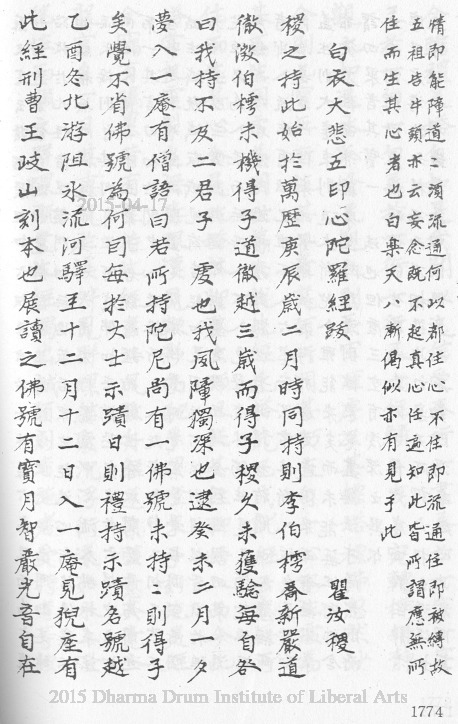 情即能降道二須流通何以都住心不住即流通住即被縛故
五祖告牛頭亦云妄念既不起真心任遍知此皆所謂應無所
住而生其心者也白樂天漸偈似亦有見于此
白衣大悲五印心陀羅經跋 瞿汝稷
稷之持此始於萬歷庚辰歲二月時同持則李伯樗喬新嚴道
徹澂伯樗未機得子道徹越三歲而得子稷久未獲驗每自咎
曰我持不及二君子虔也我夙障獨深也逮癸未二月夕
夢入一庵有僧語曰若所持陀尼尚有一佛號未持二則得子
矣覺不省佛號為何自每於大士示蹟日則禮持示蹟名號越
乙酉冬北游阻氷流河驛至十二月十二日入一庵見猊座有
此經刑曹王岐山刻本也展讀之佛號有寶月智嚴光音自在
2015-04-17
2015 Dharma Drum Institute of Liberal Arts
1774